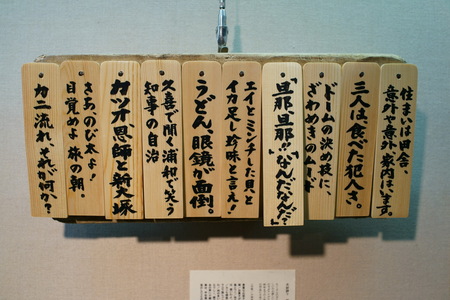 住まいは田舎、
意外や意外 家内はいます。
三人は、食べた犯人さ。
ドームの決め技に、
ざわめきのムード
「旦那、旦那!!」「なんだなんだ?」
エイとミンチした貝と
イカ足し珍味と言え!
うどん、眼鏡が面倒。
久喜で聞く浦和で笑う
知事の自治
カツオ恩師と新大塚
さあ、のび太よ!
目覚めよ 旅の朝。
カニ 流れ、それが何か?